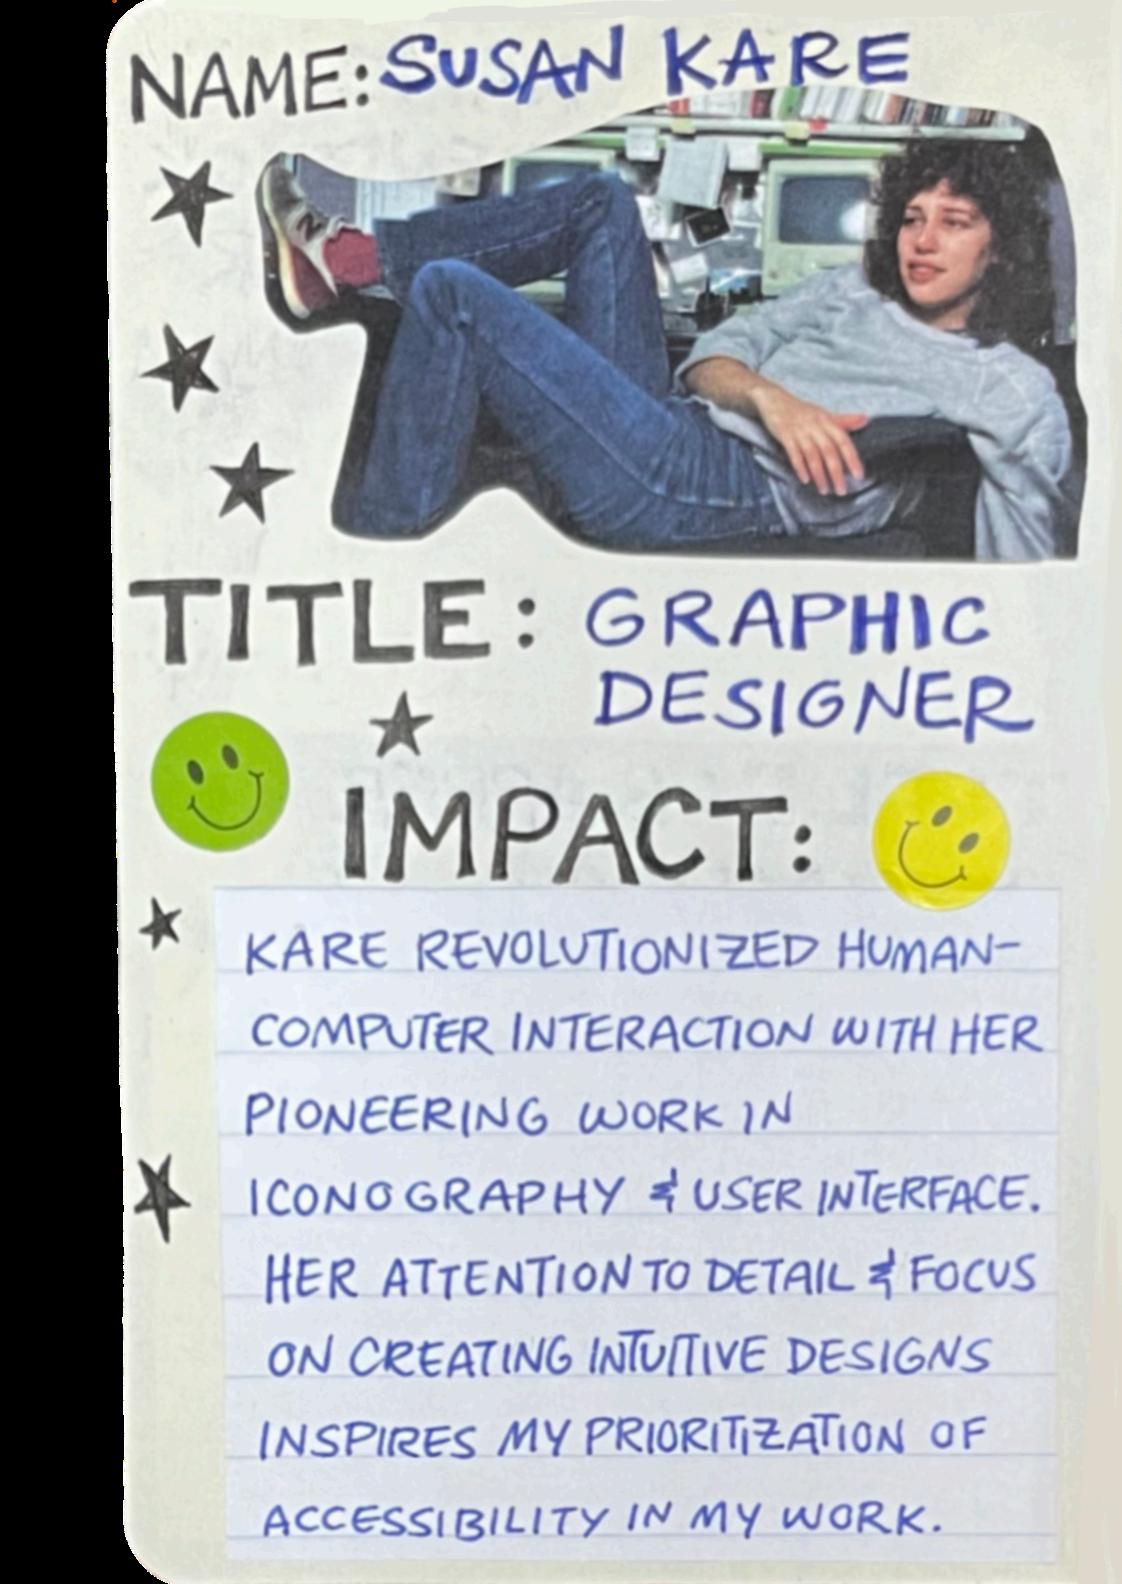 NAME: SUSAN KARE
N
TITLE: GRAPHIC
DESIGNER
IMPACT:
KARE REVOLUTIONIZED HUMAN-
COMPUTER INTERACTION WITH HER
PIONEERING WORK IN
ICONOGRAPHY & USER INTERFACE.
HER ATTENTION TO DETAIL & FOCUS
ON CREATING INTUITIVE DESIGNS
INSPIRES MY PRIORITIZATION OF
ACCESSIBILITY IN MY WORK.